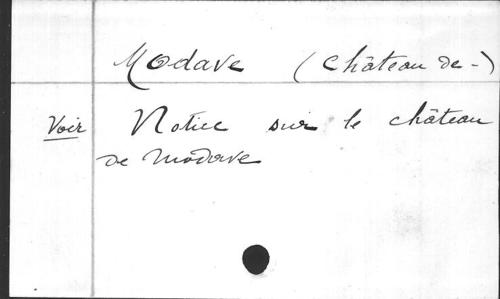 Modave (Château de -)
Voir Notice sur le château
de Modave